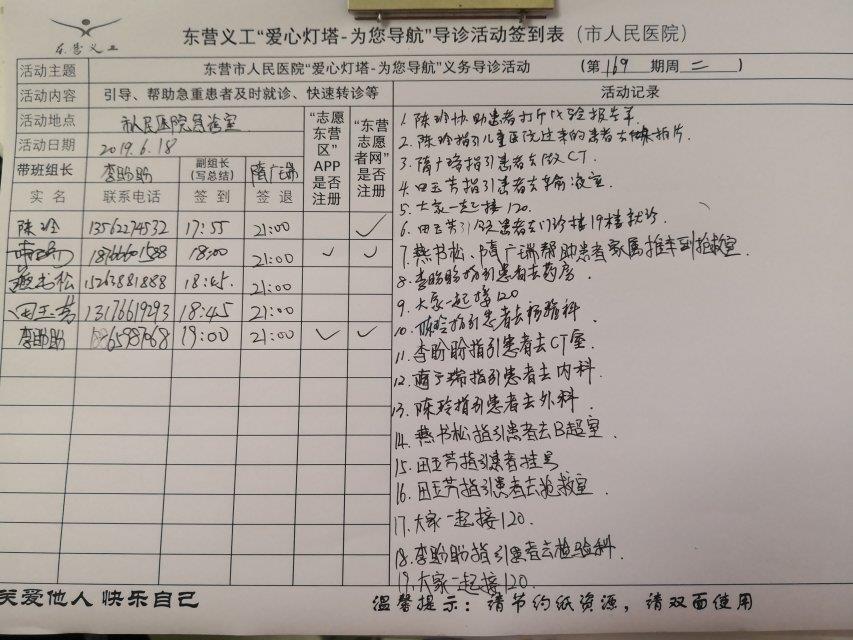 东营义工
东营义工“爱心灯塔-为您导航”导诊活动签到表（市人民医院）
活动主题 东营市人民医院“爱心灯塔-为您导航”义务导诊活动 （第 169 期周 二 ）
活动内容 引导、帮助急重患者及时就诊、快速转诊等
活动地点 市人民医院急诊室
活动日期 2019.6.18
带班组长 李盼盼 副组长（写总结） 隋广瑞
“志愿东营区”APP是否注册
“东营志愿者网”是否注册
实名 联系电话 签到 签退
陈玲 13562274532 17:55 21:00 ✓
18766601588 18:00 21:00 ✓ ✓
燕书松 15263881888 18:45. 21:00
田玉芳 13176619293 18:45 21:00
李盼盼 65987068 19:00 21:00 ✓ ✓
活动记录
1. 陈玲协助患者打斤化验报告单
2. 陈玲指引儿童医院过来的患者去做拍片.
3. 隋广瑞指引患者去做CT.
4. 田玉芳指引患者去输液室.
5. 大家一起接120.
6. 田玉芳引领患者去门诊楼19楼就诊.
7. 燕书松、隋广瑞帮助患者家属推车到抢救室.
8. 李盼盼指引患者去药房.
9. 大家一起接120
10. 陈玲指引患者去科
11. 李盼盼指引患者去CT室.
12. 隋广瑞指引患者去内科.
13. 陈玲指引患者去外科.
14. 燕书松指引患者去B超室.
15. 田玉芳指引患者挂号
16. 田玉芳指引患者去抢救室.
17. 大家一起接120.
18. 李盼盼指引患者去检验科.
19. 大家一起接120.
关爱他人 快乐自己
温馨提示：请节约纸资源，请双面使用